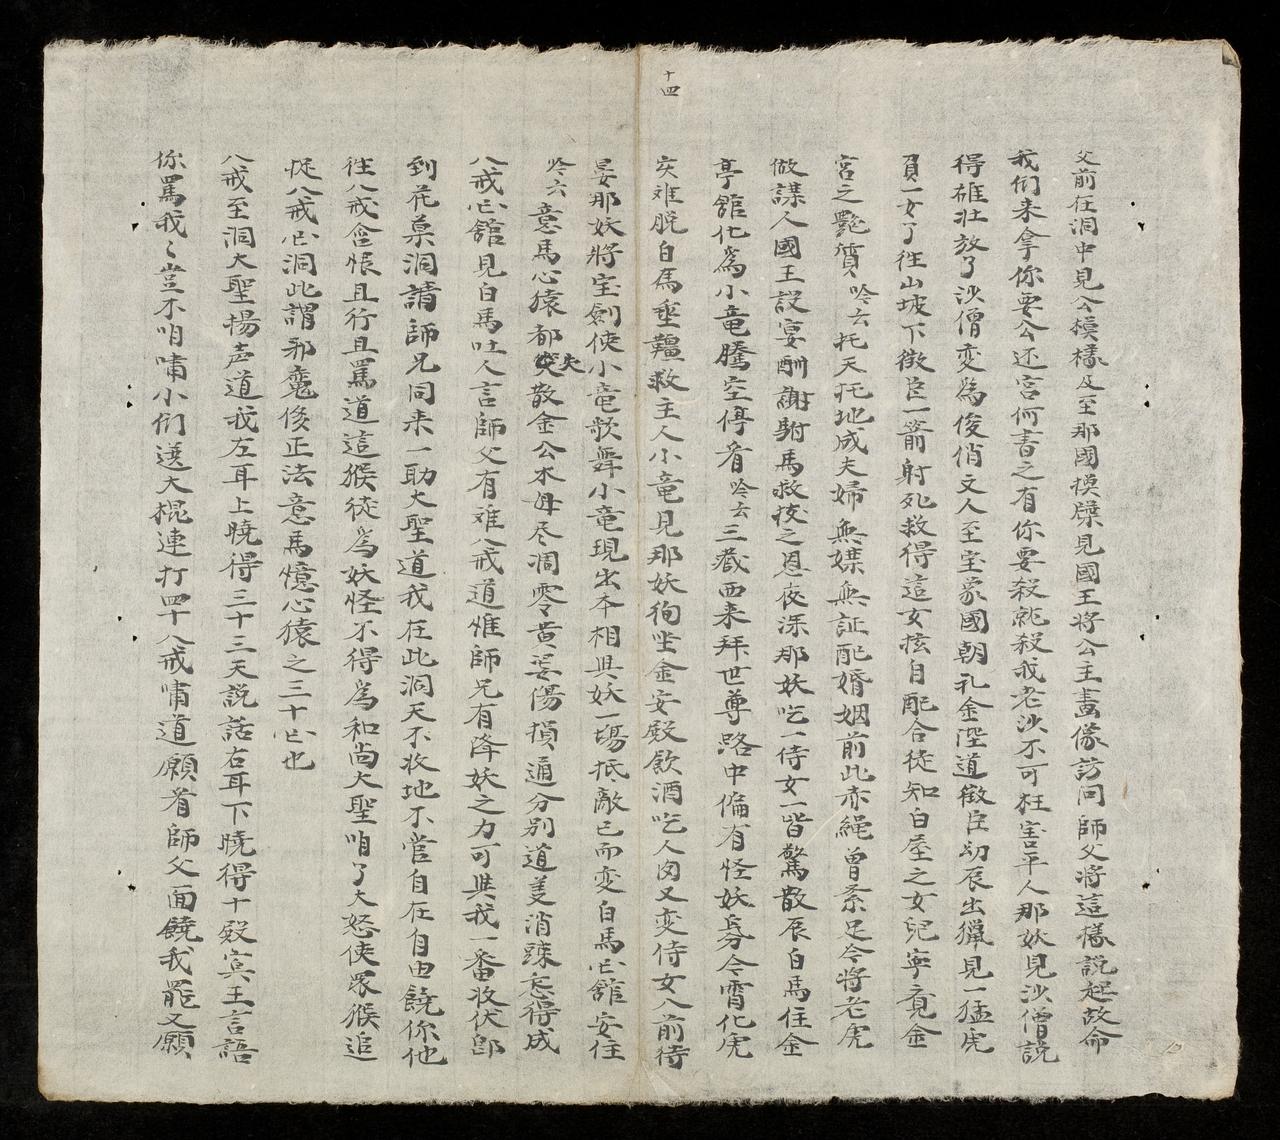 十四
父前在洞中見公模樣及至那國模牒見國王將公主畫像訪问師父将這樣說起故命
我们来拿你要公还宮何害之有你要殺就殺我老沙不可枉害平人那妖見沙僧説
得雄壮放了沙僧变為俊俏文人至宝象國朝礼金陛道微臣幼辰出猟見一猛虎
負一女了徃山坡下微臣一箭射死救得這女於自配合徒知白屋之女児寧竟金
宮之艷質吟云托天托地成夫婦無媒無証配婚姻前此赤繩曾系足今将老虎
做謀人國王設宴酬謝駙馬救拔之恩夜深那妖吃一侍女一皆驚散辰白馬住金
亭舘化為小竜騰空停看吟云三蔵西来拜世尊路中偏有怪妖氛今霄化虎
灾难脱白馬垂韁救主人小竜見那妖徇坐金安殿飲酒吃人肉又变侍女入前待
宴那妖將宝劍使小竜歌舞小竜現出本相與妖一塲抵敵已而变白馬亡舘安住
吟云意馬心猿都失散金公木母尽凋零黄婆傷損通分别道義消踈怎得成
八戒亡舘見白馬吐人言師父有难八戒道惟師兄有降妖之力可與我一番收伏即
到花菓洞請師兄同来一助大聖道我在此洞天不收地不管自在自由饒你他
徃八戒含恨且行且罵道這猴徒為妖怪不得為和尚大聖咱了大怒使衆猴追
捉八戒亡洞此謂邪魔侵正法意馬憶心猿之三十亡也
八戒至洞大聖揚声道我左耳上曉得三十三天説話右耳下曉得十殿冥王言語
你罵我〻豈不咱嘯小们送大棍連打四十八戒嘯道願看師父面饒我罷又願